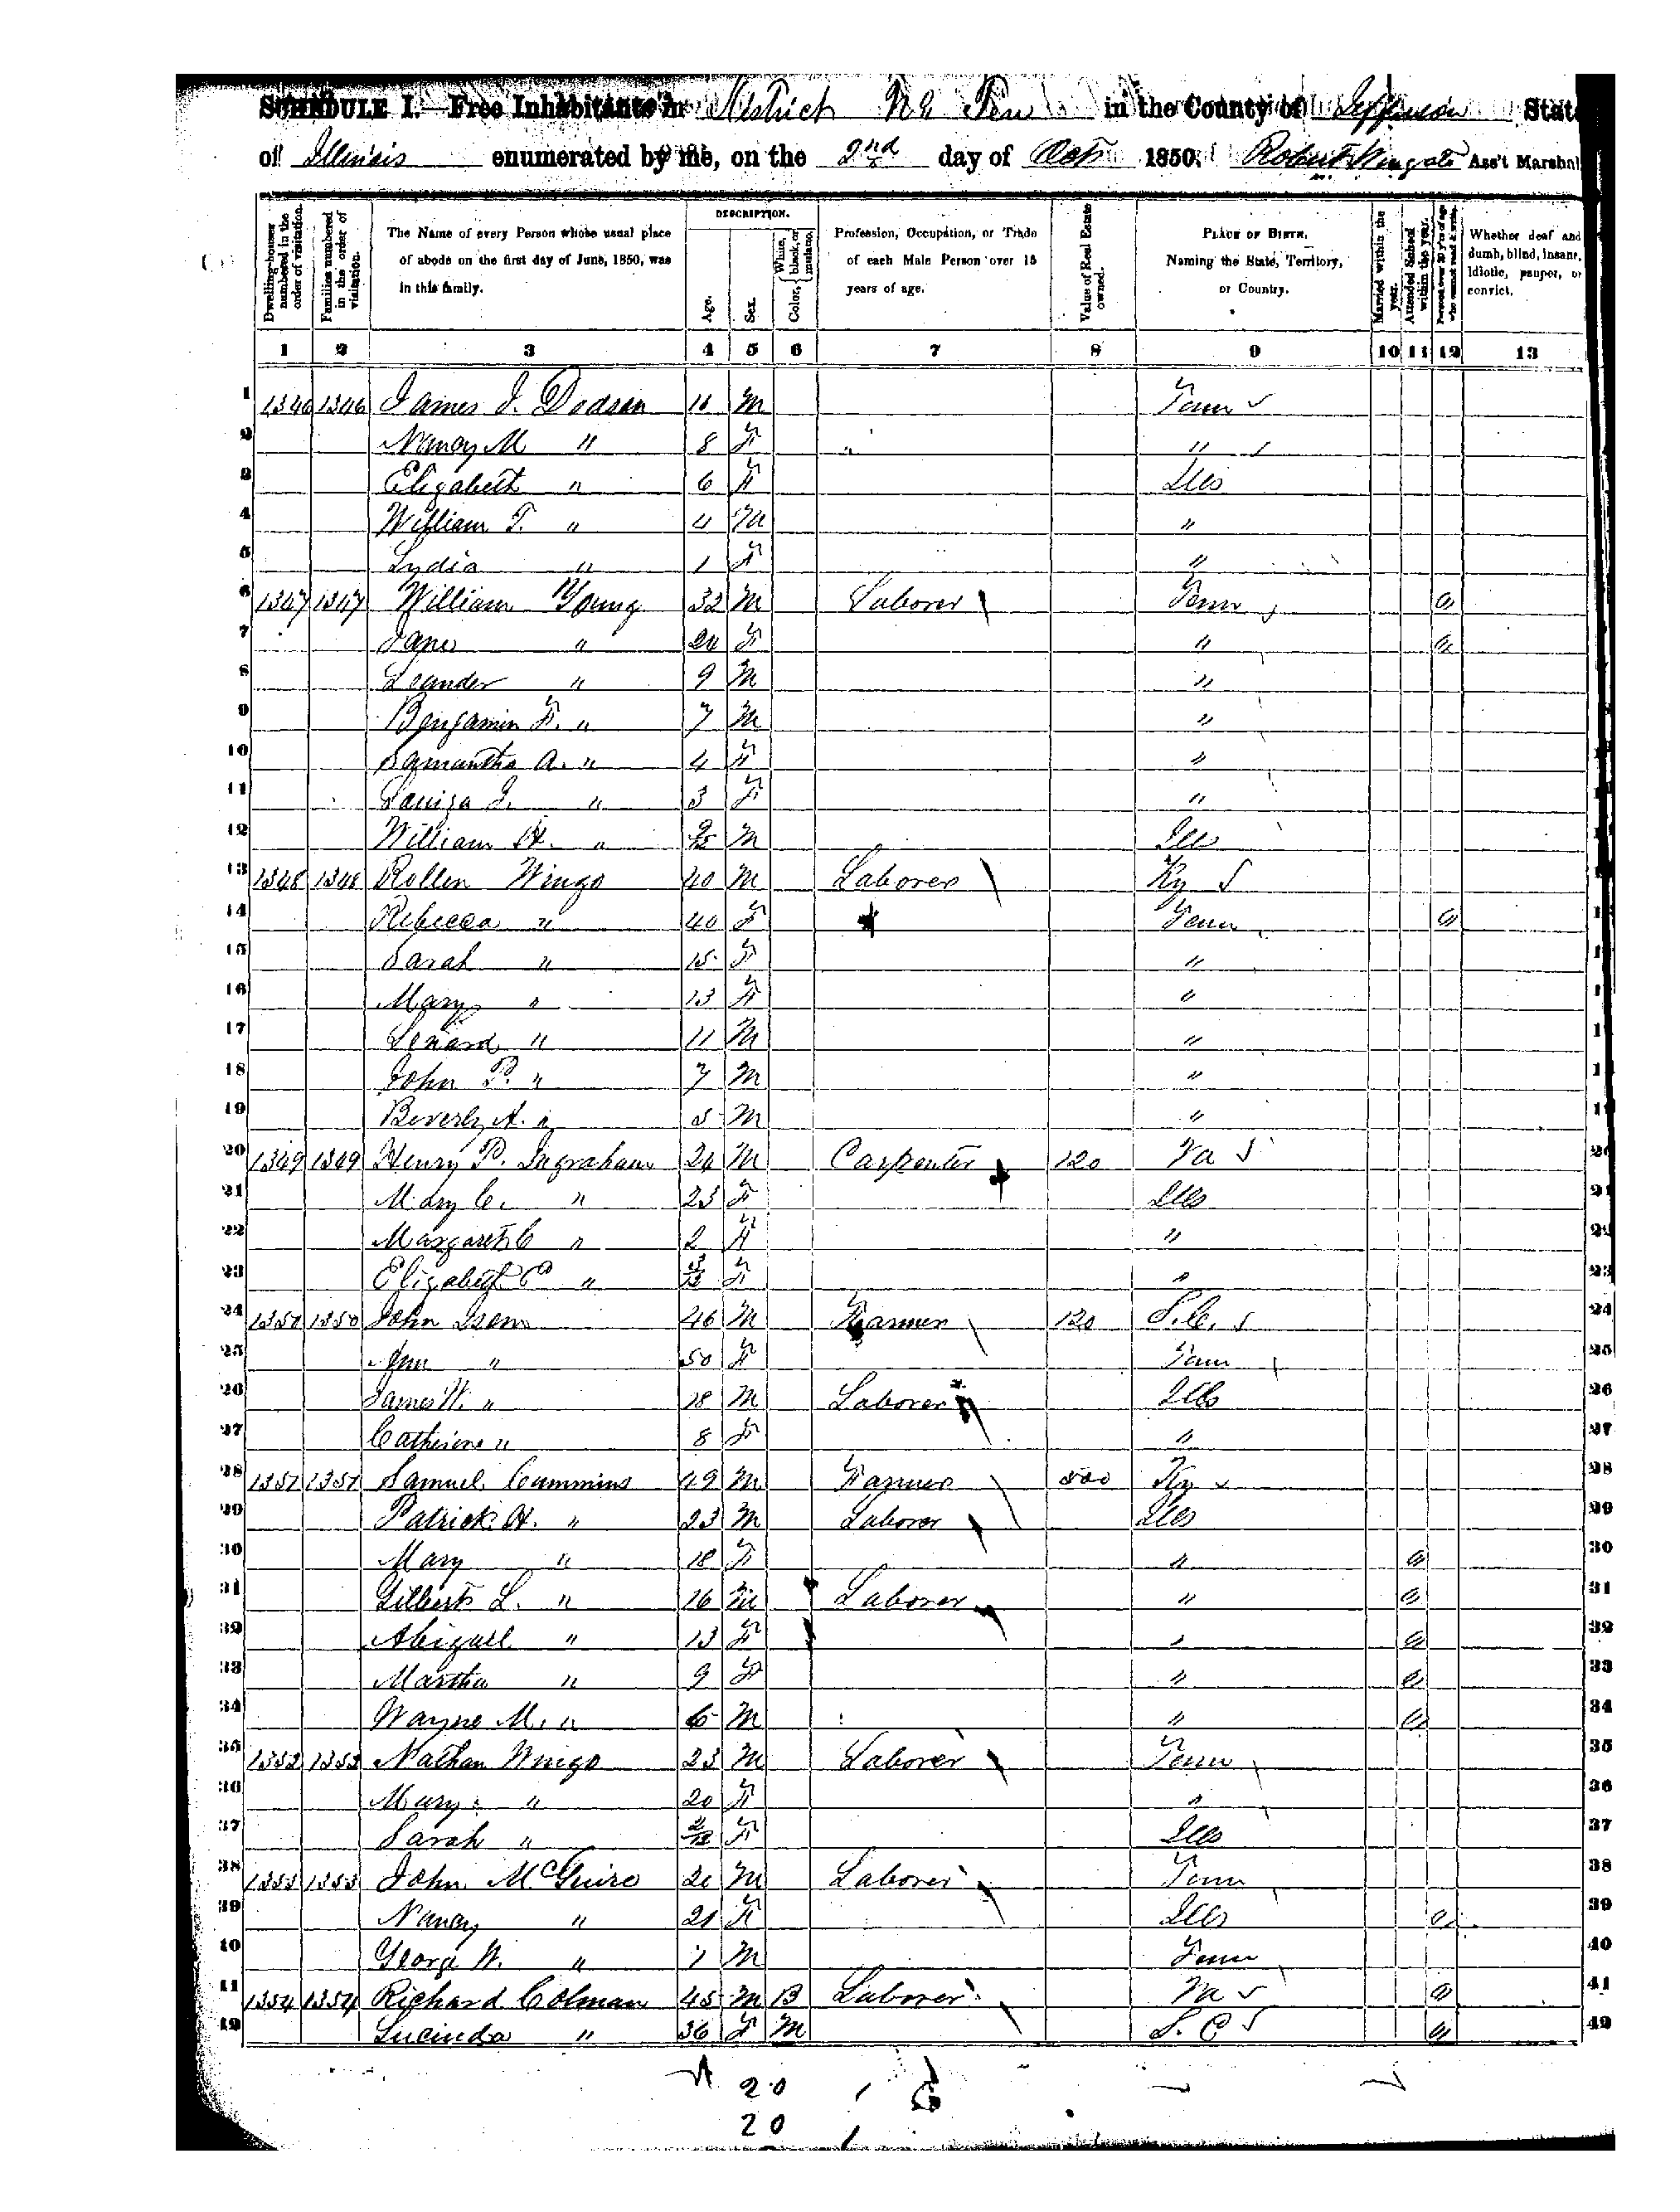 SCHEDULE I.—Free Inhabitants in District No Ten in the County of Jefferson State
of Illinois enumerated by me, on the 2nd day of Oct 1850. Robert Wingate Ass't Marshal
Dwelling-houses numbered in the order of visitation.
Families numbered in the order of visitation.
The Name of every Person whose usual place of abode on the first day of June, 1850, was in this family.
DESCRIPTION.
Age.
Sex.
Color, { White, black, or mulatto.
Profession, Occupation, or Trade of each Male Person over 15 years of age.
Value of Real Estate owned.
PLACE OF BIRTH, Naming the State, Territory, or Country.
Married within the year.
Attended School within the year.
Persons over 20 y'rs of age who cannot read & write.
Whether deaf and dumb, blind, insane, idiotic, pauper, or convict.
1 2 3 4 5 6 7 8 9 10 11 12 13
1 1346 1346 James J. Dodson 11 M Tenn
2 Nancy M " 8 F " "
3 Elizabeth " 6 F Ills
4 William T. " 4 M "
5 Lydia " 1 F "
6 1347 1347 William Young 32 M Laborer Tenn
7 Jane " 24 F "
8 Leander " 9 M "
9 Benjamin F. " 7 M "
10 Samantha A. " 4 F "
11 Louiza J. " 3 F "
12 William H. " 9/12 M Ills
13 1348 1348 Rollen Wingo 40 M Laborer Ky
14 Rebecca " 40 F Tenn
15 Sarah " 15 F "
16 Mary " 13 F "
17 Lenard " 11 M "
18 John P. " 7 M "
19 Beverly A. " 5 M "
20 1349 1349 Henry P. Ingraham 24 M Carpenter 120 Va
21 Mary C. " 23 F Ills
22 Margaret C " 2 F "
23 Elizabeth C " 3/12 F "
24 1350 1350 John Isom 46 M Farmer 120 S.C.
25 Ann " 50 F Tenn
26 James W. " 18 M Laborer Ills
27 Catherine " 8 F "
28 1351 1351 Samuel Cummins 49 M Farmer 500 Ky
29 Patrick H. " 23 M Laborer Ills
30 Mary " 18 F "
31 Gilbert L. " 16 M Laborer "
32 Abigail " 13 F "
33 Martha " 9 F "
34 Wayne M. " 6 M "
35 1352 1352 Nathan Wingo 23 M Laborer Tenn
36 Mary " 20 F "
37 Sarah " 2/12 F Ills
38 1353 1353 John McGuire 20 M Laborer Tenn
39 Nancy " 21 F Ills
40 Georg W. " 1 M Tenn
41 1354 1354 Richard Colman 45 M B Laborer Va
42 Lucinda " 36 F M S. C
20
20